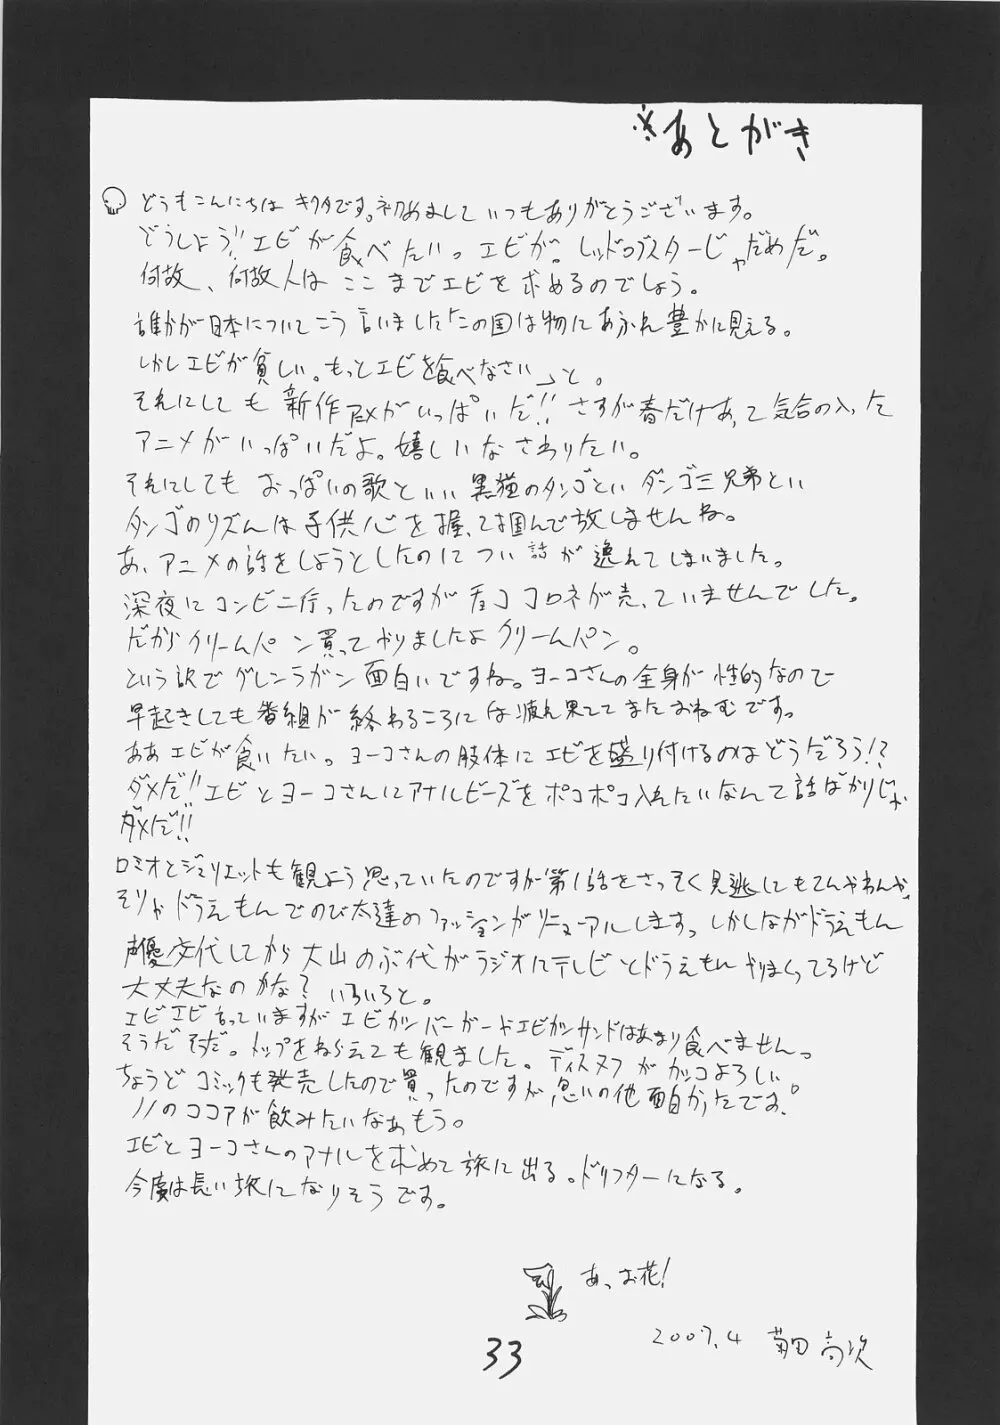 ※あとがき
どうもこんにちは キクタです。初めまして いつもありがとうございます。
どうしよう!!エビが食べたいっエビが。レッドロブスターじゃだめだ。
何故、何故人は ここまでエビを求めるのでしょう。
誰かが日本についてこう言いました「この国は物にあふれ豊かに見える。
しかしエビが貧しい。もっとエビを食べなさい」と。
それにしても 新作アニメがいっぱいだ!! さすが春だけあって気合の入った
アニメがいっぱいだよ。嬉しいなさわりたい。
それにしても おっぱいの歌といい 黒猫のタンゴといい ダンゴ三兄弟とい
タンゴのリズムは子供心を握って掴んで放しませんね。
あ、アニメの話をしようとしたのについ話が逸れてしまいました。
深夜にコンビニ行ったのですがチョココロネが売っていませんでした。
だからクリームパン買ってやりましたよクリームパン。
という訳でグレンラガン面白いですね。ヨーコさんの全身が性的なので
早起きしても番組が終わるころには疲れ果ててまたおねむです。
ああエビが食いたい。ヨーコさんの肢体にエビを盛り付けるのはどうだろう!?
ダメだ!!エビとヨーコさんにアナルビーズをポコポコ入れたいなんて話ばかりじゃ
ダメだ!!
ロミオとジュリエットも観よう思っていたのですが第1話をさっそく見逃してもてんやわんや、
そりゃドラえもんでのび太達のファッションがリニューアルします。しかしながドラえもん
声優交代してから大山のぶ代がラジオにテレビとドラえもんやりまくってるけど
大丈夫なのかな?いろいろと。
エビエビ言っていますがエビカツバーガーやエビカツサンドはあまり食べませんっ
そうだそうだ。トップをねらえても観ました。ディスヌフがカッコよろしい
ちょうどコミックも発売したので買ったのですが思いの他面白かったです。
ノノのココアが飲みたいなぁもう。
エビとヨーコさんのアナルを求めて旅に出る。ドリフターになる。
今度は長い旅になりそうです。
あっお花!
2007.4 菊田高次
33